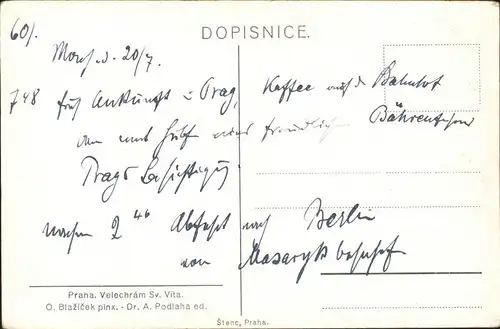 60/.
DOPISNICE.
20/7.
7 48 früh Ankunft i. Prag, Kaffee auf d. Bahnhof
dann mit Hilfe eines freundlichen
Prags Besichtigung
nachm 2 46 Abfahrt nach Berlin
von Masaryk bahnhof
Praha. Velechrám Sv. Víta.
O. Blažíček pinx. - Dr. A. Podlaha ed.
Štenc, Praha.